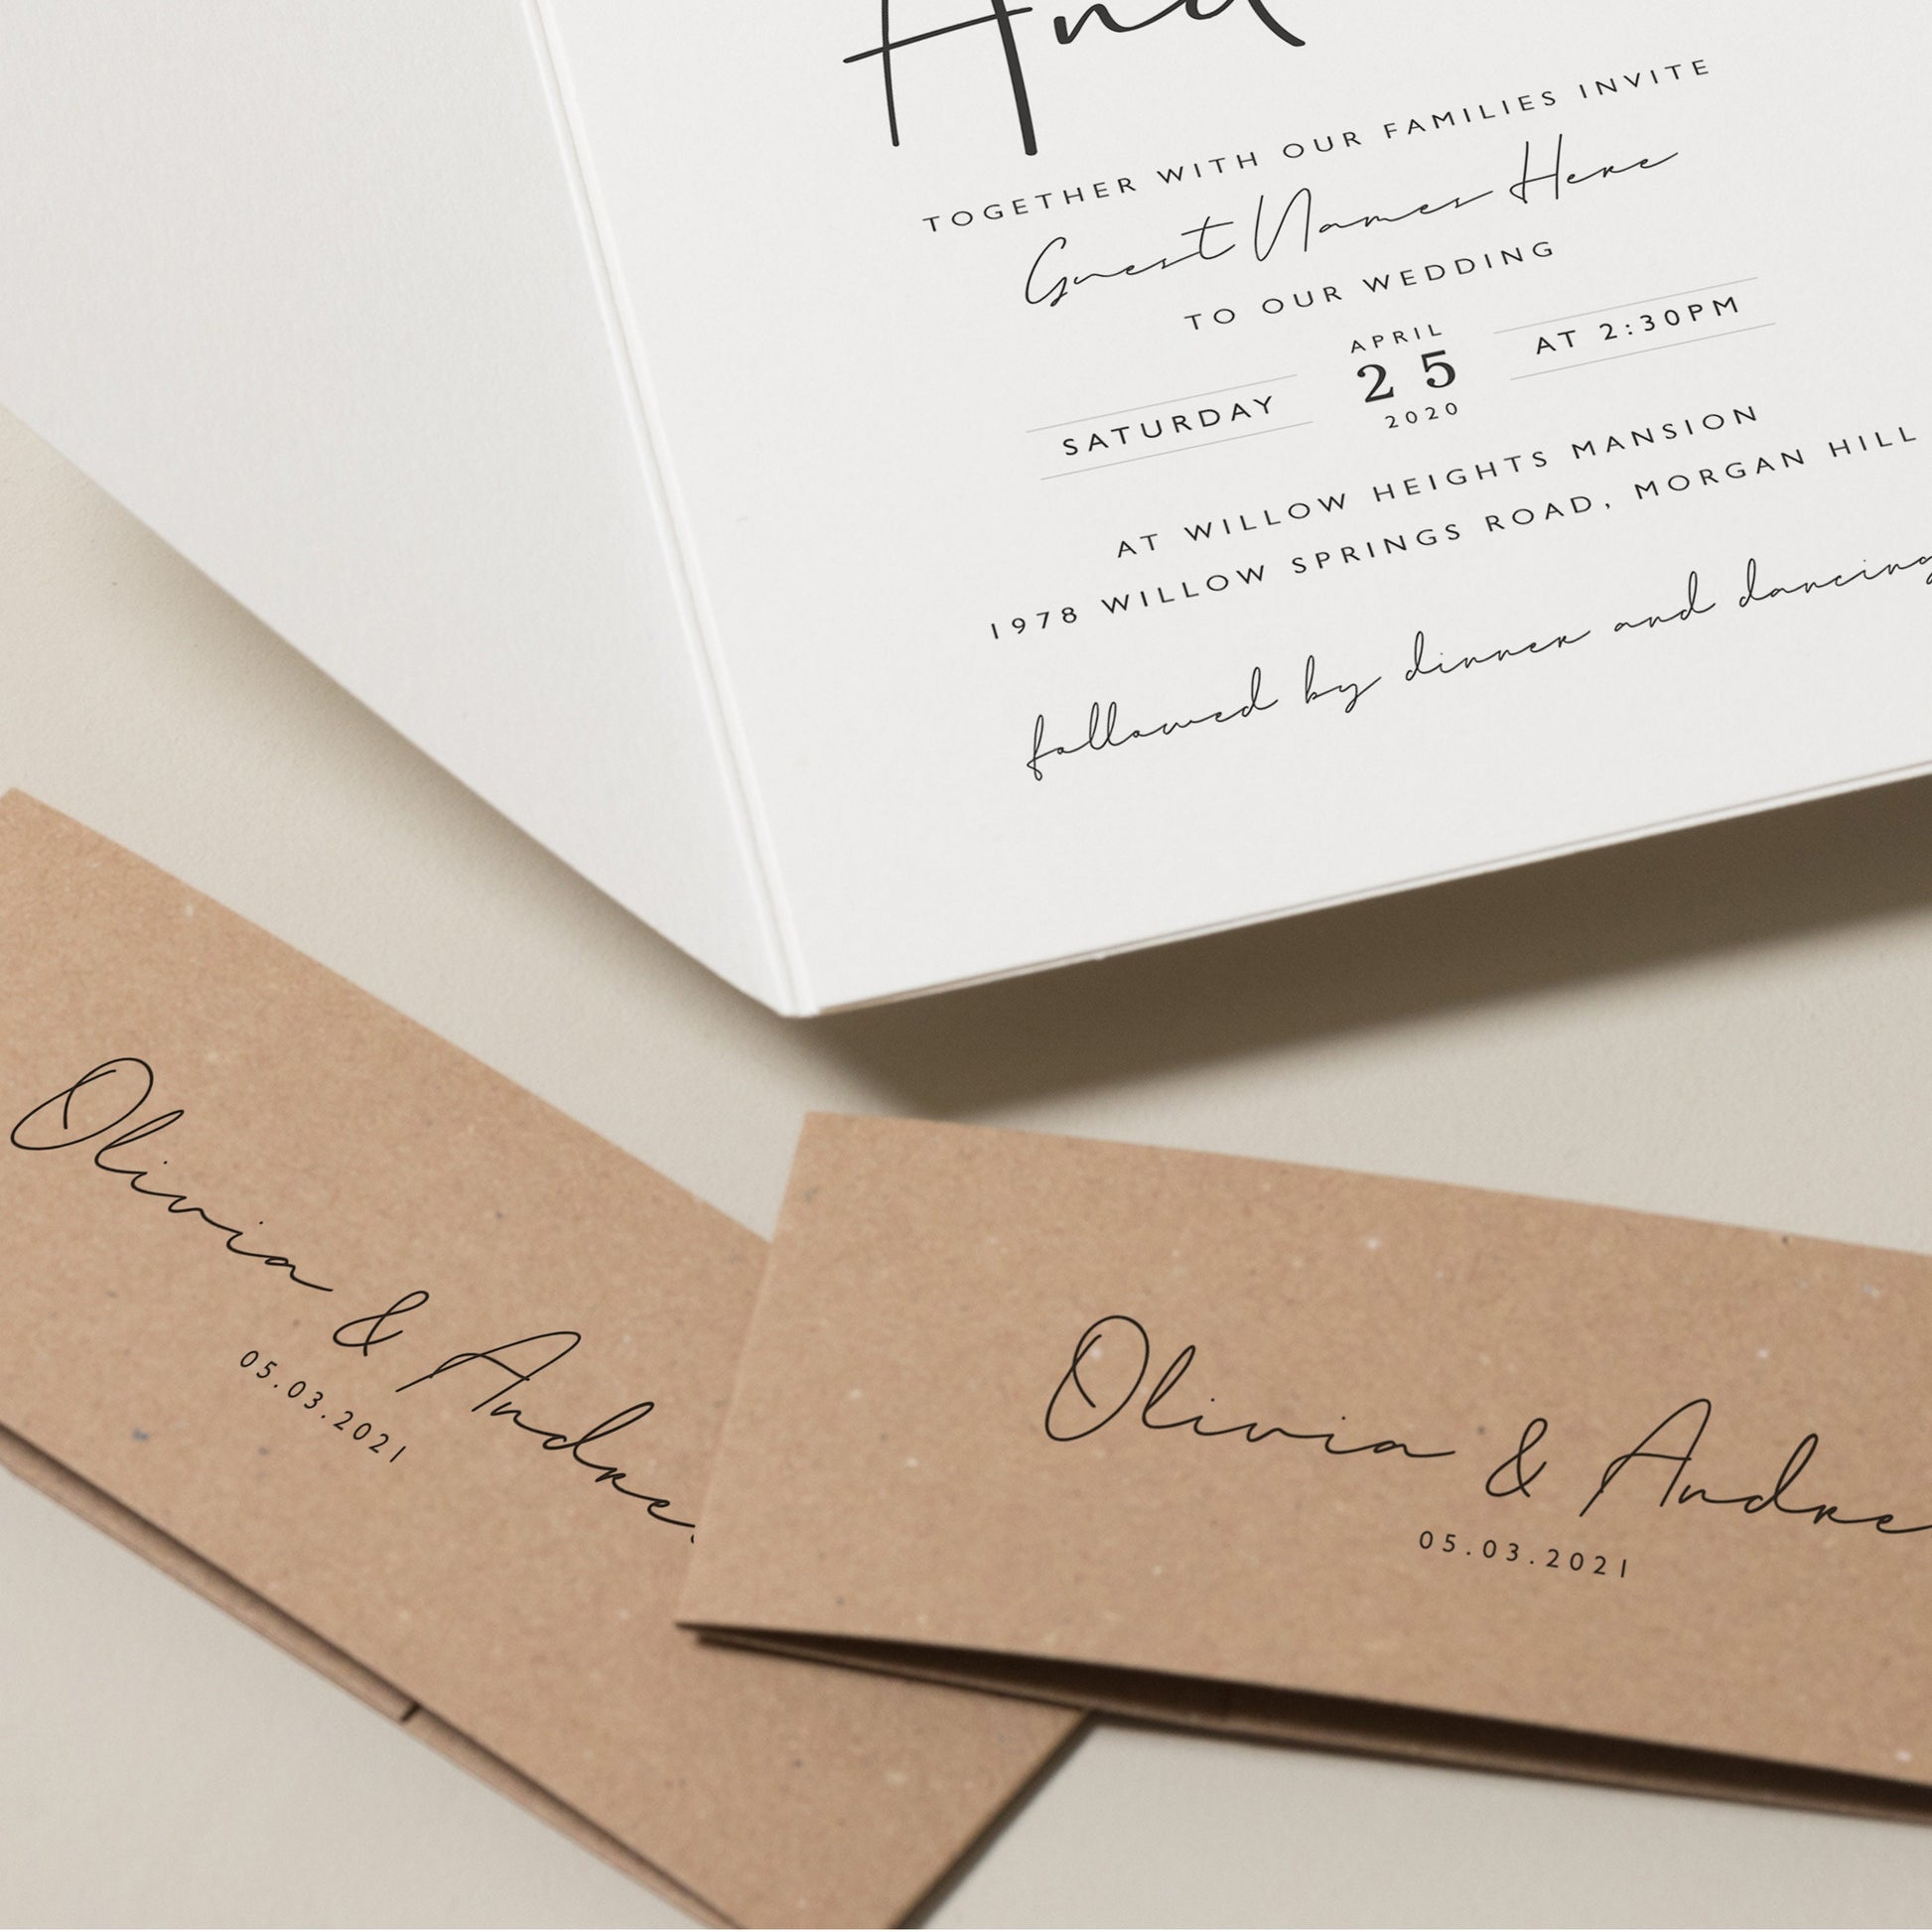 And
TOGETHER WITH OUR FAMILIES INVITE
Guest Names Here
TO OUR WEDDING
SATURDAY
APRIL
25
2020
AT 2:30PM
AT WILLOW HEIGHTS MANSION
1978 WILLOW SPRINGS ROAD, MORGAN HILL
followed by dinner and dancing
Olivia & Andre
05.03.2021
Olivia & Andre
05.03.2021